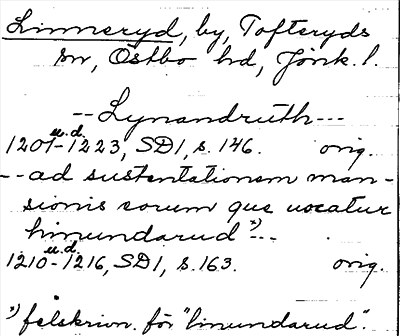 Linneryd, by, Tofteryds
sn, Östbo hd, Jönk. l.
--Lynandruth---
1201-1223, SD1, s. 146. orig.
u.d.
--ad sustentationem man-
sionis eorum que uocatur
hinundarud x)--
1210-1216, SD1, s. 163. orig.
u.d.
x) felskrivn. för "linundarud".